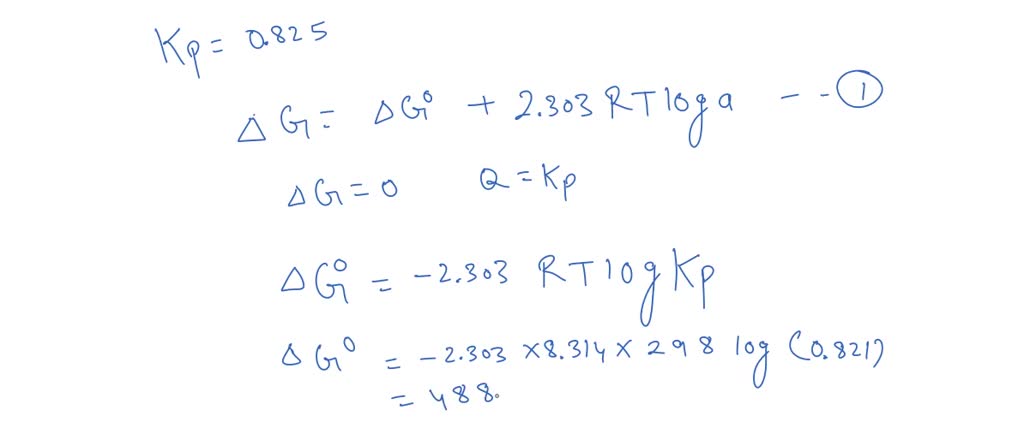 Kp = 0.825
ΔG = ΔG° + 2.303 RT log a - - ①
ΔG = 0 Q = Kp
ΔG° = -2.303 RT log Kp
ΔG° = -2.303 × 8.314 × 298 log (0.821)
= 488.